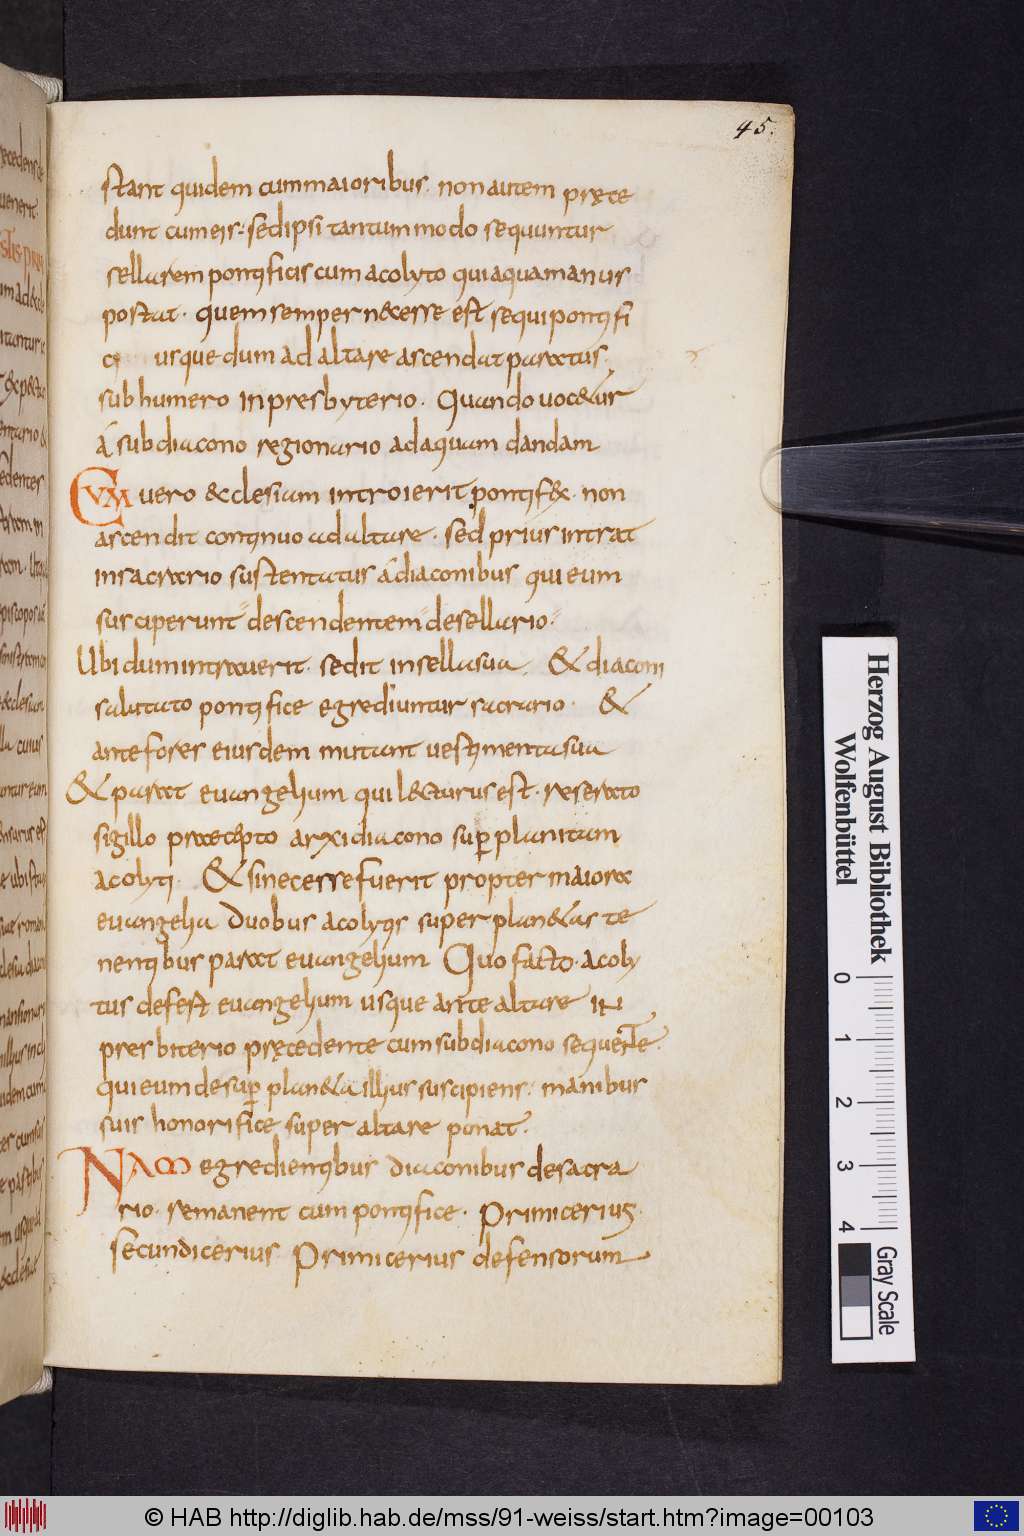 45.
stant quidem cum maioribus. non autem pręce
dunt cum eis: sed ipsi tantummodo sequuntur
sellarem pontificis cum acolyto qui aquamanus
portat. quem semper n&cesse est sequi pontifi
c usque dum ad altare ascendat paratus.
sub humero in presbyterio. Quando voc&ur
á subdiacono regionario ad aquam dandam
CUM vero &clesiam introierit pontif&. non
ascendit continuo ad altare. sed prius intrat
in sacrario sustentatus á diaconibus qui eum
susciperunt descendentem de sellario.
Ubi dum intraverit. sedit in sella sua. & diaconi
salutato pontifice egrediuntur sacrario. &
ante fores eiusdem mutant vestimenta sua
& parat evangelium qui l&cturus est. reserato
sigillo praecepto arxidiacono sup planitam
acolyti. & si necesse fuerit propter maiora
evangelia duobus acolytis super plan&as te
nentibus parat evangelium Quo facto. acoly
tus defest evangelium usque ante altare in
presbiterio pręcedente cum subdiacono sequente.
qui eum desup plan&a illius suscipiens. manibus
suis honorifice super altare ponat.
NAM egredientibus diaconibus de sacra
rio. remanent cum pontifice. Primicerius.
secundicerius Primicerius defensorum
Herzog August Bibliothek
Wolfenbüttel
0 1 2 3 4
Gray Scale
© HAB http://diglib.hab.de/mss/91-weiss/start.htm?image=00103